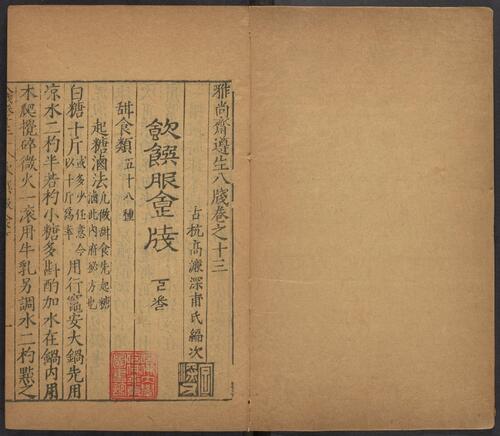 雅尚齋遵生八牋卷之十三
古杭高濂深甫氏編次
飲饌服食牋 下卷
甜食類 五十八種
起糖滷法 凡做甜食先起糖滷此內府秘方也
白糖十斤 或多少任意今以十斤為率 用行竈安大鍋先用
凉水二杓半若杓小糖多斟酌加水在鍋內用
木爬攪碎微火一滾用牛乳另調水二杓點之